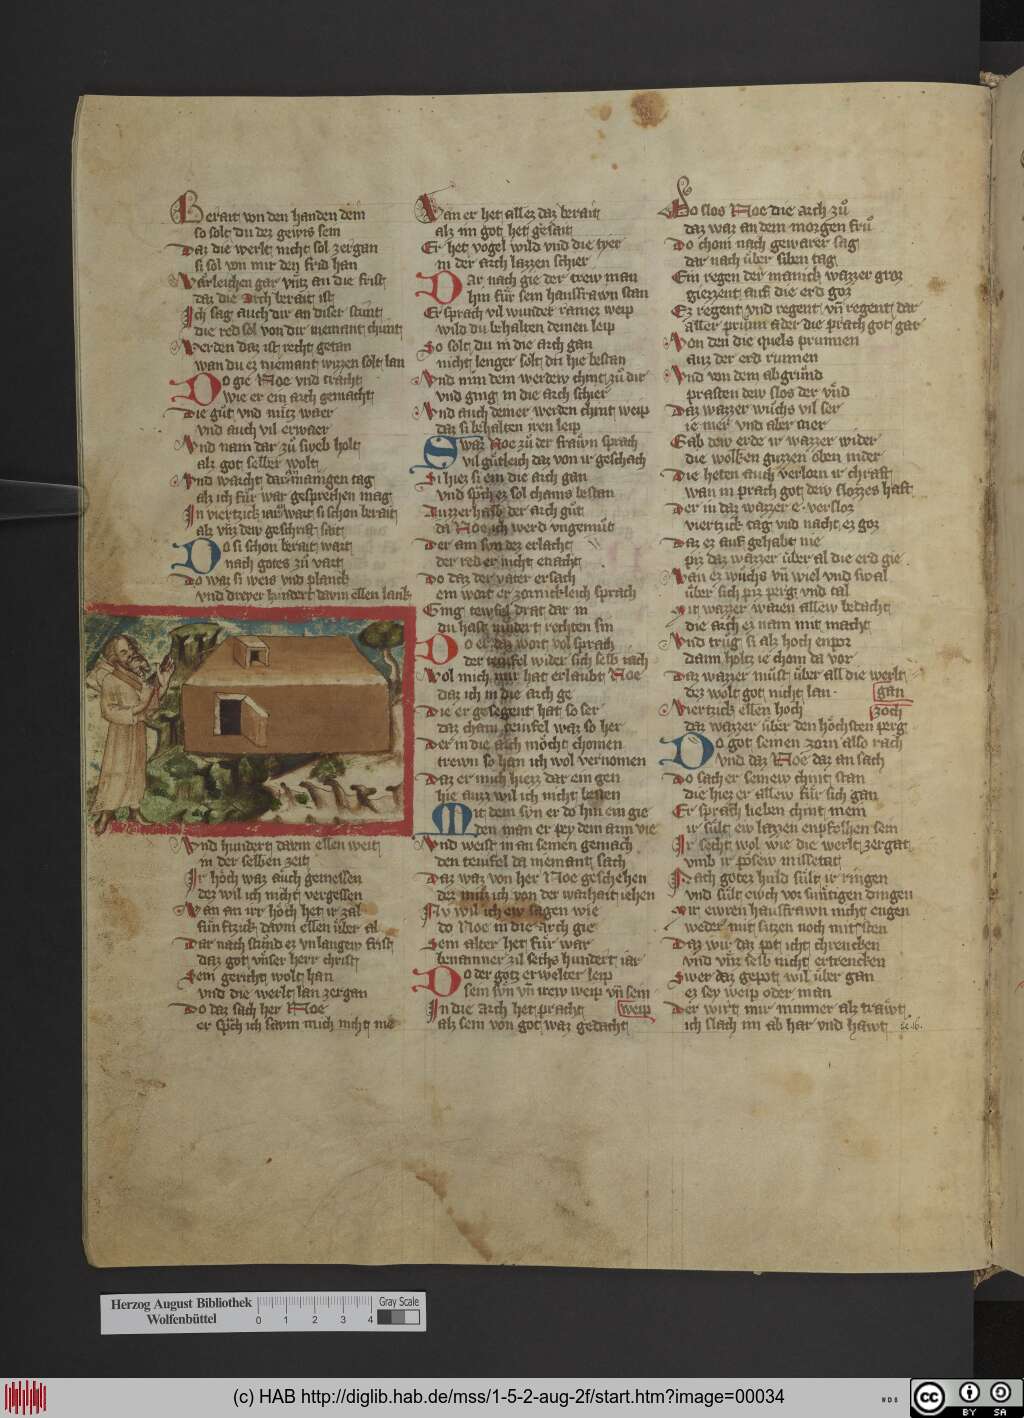 Berait von den handen dein
so solt du dez gewis sein
Daz die werlt nicht sol zergan
si sol von mir den frid han
Warleichen gar vntz an die frist
daz die Arch berait ist
Ich sag auch dir an diser stunt
die red sol von dir niemant chunt
Werden daz ist recht getan
wan du ez niemant wizzen solt lan
Do gie Noe vnd tracht
wie er ein arch gemacht
Die gut vnd nutz waer
vnd auch vil erwaer
Vnd nam dar zů sweb holtz
alz got selber wolt
Vnd waicht dar manigen tag
alz ich für war gesprechen mag
In viertzick iar wart si schon berait
alz vnz dew geschrift sait
Do si schon berait wart
nach gotes zů vart
Do waz si weis vnd planck
vnd dreyer hundert davm ellen lank
Vnd hundert davm ellen weit
in der selben zeit
Ir hoch waz auch gemessen
dez wil ich nicht vergessen
Wan an irr hoch het ir zal
funftzick davm ellen über al
Dar nach stund ez vnlangew frist
daz got vnser herr christ
Sein gericht wolt han
vnd die werlt lan zergan
Do daz sach her Noe
er spch ich savm mich nicht me
Wan er het allez daz berait
alz im got het gesait
Er het vogel wild vnd die tyer
in der arch lazzen schier
Dar nach gie der trew man
hin für sein hausfrawn stan
Er sprach vil wunder rainez weip
wild du behalten deinen leip
So solt du in die arch gan
nicht lenger solt du hie bestan
Vnd nim dein werdew chint zů dir
vnd ging in die arch schier
Vnd auch deiner werden chint weip
daz si behalten iren leip
Swaz Noe zů der frawn sprach
vil gütleich daz von ir geschach
Si hiez si ein die arch gan
vnd spch ez sol chains bestan
Auzzerhalb der arch güt
da Noe ich werd vngemüt
Der ain svn dez erlacht
der red er nicht enacht
Do daz der vater ersach
ein wort er zornickleich sprach
Ging tewfel drat dar in
du hast nindert rechten sin
Do er daz wort vol sprach
der teufel wider sich selb iach
Wol mich mir hat erlaubt Noe
daz ich in die arch ge
Die er gesegent hat so ser
daz chain teufel waz so her
Der in die arch möcht chomen
trewn so han ich wol vernomen
Daz er mich hiezz dar ein gen
hie auzz wil ich nicht besten
Mit dem svn er do hin ein gie
den man er pey dem arm vie
Vnd weist in an seinen gemach
den teufel da niemant sach
Daz waz von her Noe geschehen
dez muz ich von der warhait iehen
Nv wil ich ew sagen wie
do Noe in die arch gie
Sein alter het für war
benanner zil sechs hundert iar
Do der gotz erwelter leip
sein svn vn irew weip vn sein
weip
In die arch het pracht
alz sein von got waz gedacht
Do slos Noe die arch zů
daz waz an dem morgen frů
Do chom nach gewarer sag
dar nach über siben tag
Ein regen der manich wazzer groz
giezzent auf die erd goz
Ez regent vnd regent vn regent dar
aller prunn ader die prach got gar
Von den die quels prunnen
auz der erd runnen
Vnd von dem abgrund
prasten dew slos der vnd
Daz wazzer wuchs vil ser
ie mer vnd aber mer
Gab dew erde ir wazzer wider
die wolken guzzen oben nider
Die heten auch verlorn ir chraft
wan in prach got dew slozzes haft
Der in daz wazzer e versloz
viertzick tag vnd nacht ez goz
Daz ez auf gehabt nie
piz daz wazzer über al die erd gie
Wan ez wuchs vn wiel vnd swal
über sich piz perg vnd tal
Mit wazzer waren allew bedacht
die arch ez nam mit macht
Vnd trüg si alz hoch enpor
dann holtz ie chom da vor
Daz wazzer müst über all die werlt
gan
dez wolt got nicht lan
Viertzick ellen hoch
zoch
daz wazzer über den höchsten perg
Do got seinen zorn also rach
vnd daz Noe daz an sach
Do sach er seinew chint stan
die hiez er allew für sich gan
Er sprach lieben chint mein
ir sült ew lazzen enpfolhen sein
Ir secht wol wie die werlt zergat
vmb ir pösew missetat
Nach gotez huld sült ir ringen
vnd sült ewch vor suntigen dingen
Mit ewren hausfrawn nicht engen
weder mit sitzen noch mit sten
Daz wir daz pot icht chrencken
vnd vnz selb nicht ertrencken
Swer daz gepot wil über gan
ez sey weip oder man
Der wirt mir nimmer alz trawt
ich slach im ab har vnd hawt
Herzog August Bibliothek
Wolfenbüttel
0 1 2 3 4
Gray Scale
(c) HAB http://diglib.hab.de/mss/1-5-2-aug-2f/start.htm?image=00034
WDB
cc BY SA